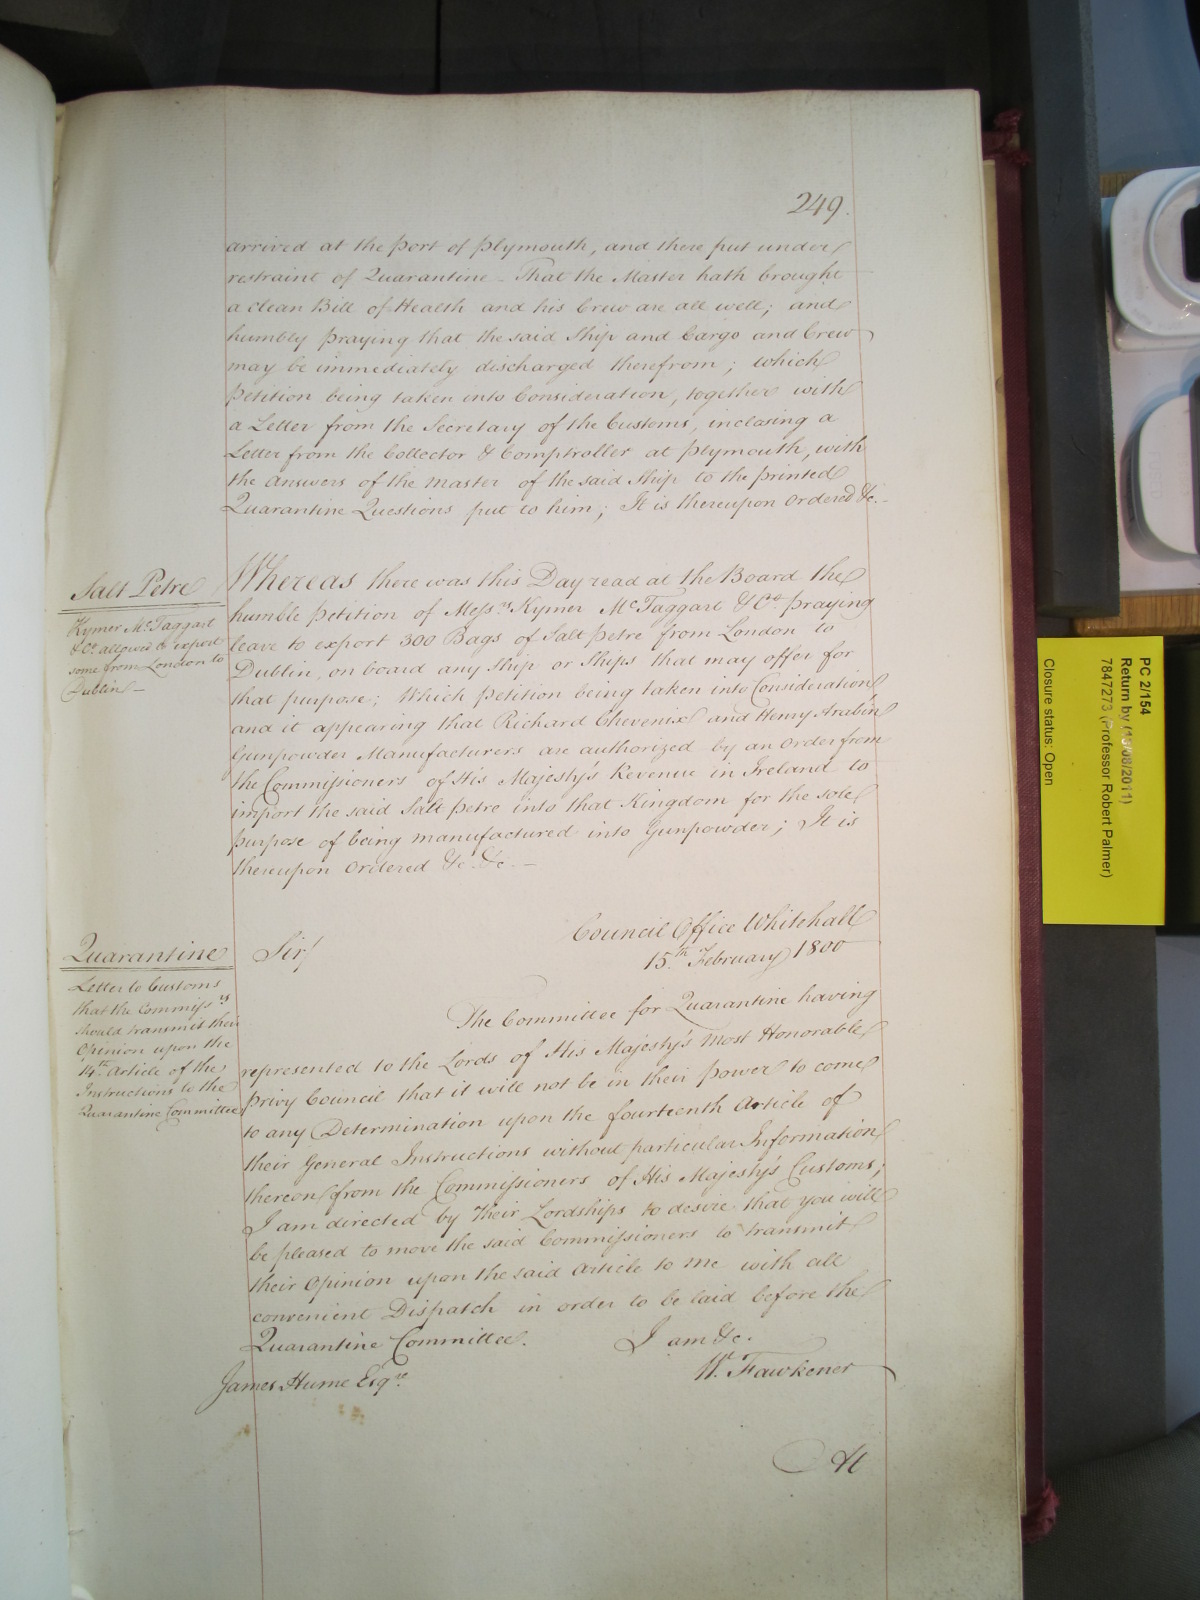 249.
arrived at the Port of Plymouth, and there put under
restraint of Quarantine - That the Master hath brought
a clean Bill of Health and his Crew are all well; and
humbly Praying that the said Ship and Cargo and Crew
may be immediately discharged therefrom; which
Petition being taken into Consideration, together with
a Letter from the Secretary of the Customs, inclosing a
Letter from the Collector & Comptroller at Plymouth, with
the Answers of the Master of the said Ship to the Printed
Quarantine Questions put to him; It is thereupon Ordered &c.-
Salt Petre
Kymer McTaggart
& Co. allowed to export
some from London to
Dublin -
Whereas there was this Day read at the Board the
humble Petition of Messrs Kymer McTaggart & Co. Praying
leave to export 300 Bags of Salt Petre from London to
Dublin, on board any Ship or Ships that may offer for
that purpose; Which Petition being taken into Consideration
and it appearing that Richard Chevenix and Henry Arabin
Gunpowder Manufacturers are authorized by an Order from
the Commissioners of His Majesty's Revenue in Ireland to
import the said Salt Petre into that Kingdom for the sole
purpose of being manufactured into Gunpowder; It is
thereupon Ordered &c. &c. -
Council Office Whitehall
15th February 1800
Quarantine
Letter to Customs
that the Commissrs
should transmit their
Opinion upon the
14th Article of the
Instructions to the
Quarantine Committee
Sir/
The Committee for Quarantine having
represented to the Lords of His Majesty's most Honorable
Privy Council that it will not be in their Power to come
to any Determination upon the fourteenth Article of
their General Instructions without particular Information
thereon from the Commissioners of His Majesty's Customs;
I am directed by Their Lordships to desire that you will
be pleased to move the said Commissioners to transmit
their Opinion upon the said Article to me with all
convenient Dispatch in order to be laid before the
Quarantine Committee. I am &c.
W. Fawkener
James Hume Esqre.
At
PC 2/154
Return by (13/08/2011)
7847273 (Professor Robert Palmer)
Closure status: Open